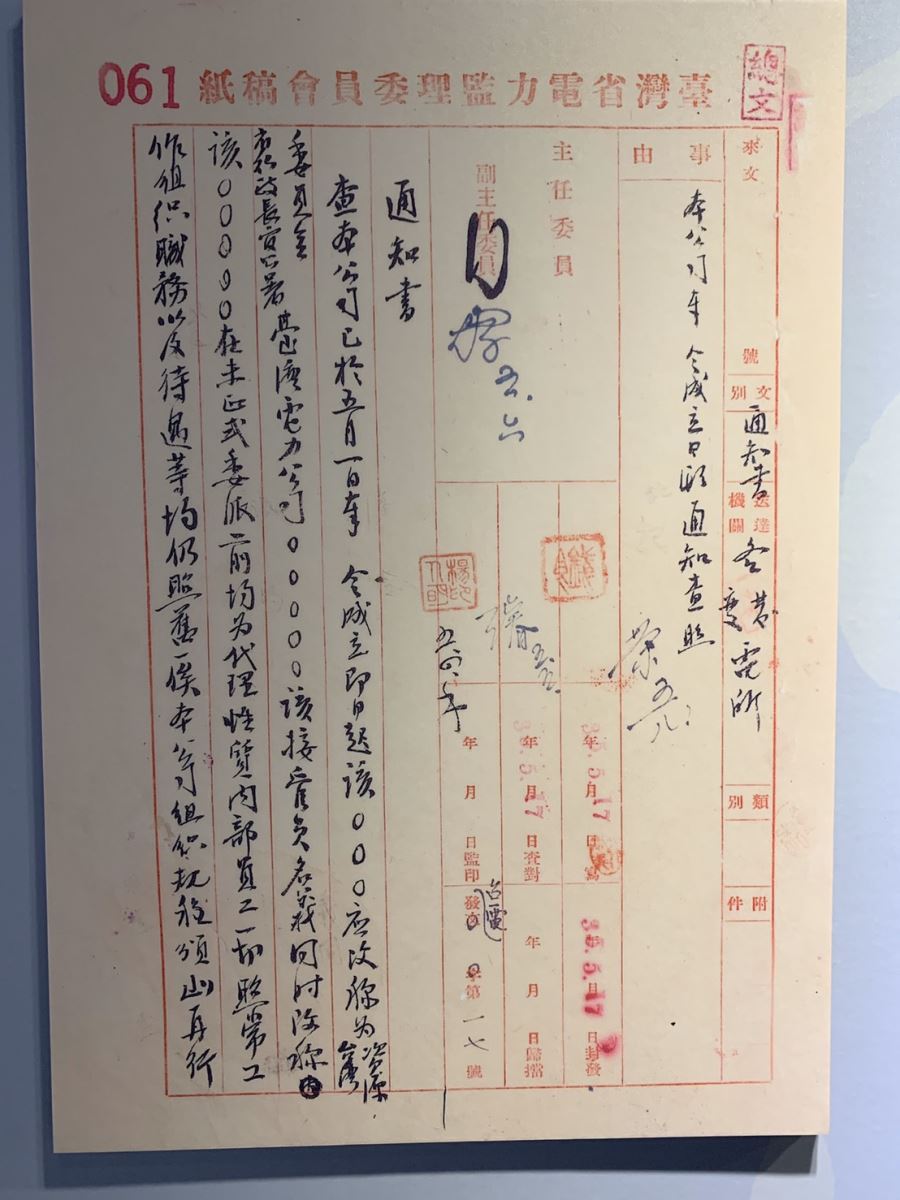 061
臺灣省電力監理委員會稿紙
總文
來文
號
文別
通知書
送達機關
各營變電所
類別
附件
事由
本公司奉 令成立日期通知查照
主任委員
副主任委員
五.六
年月日
35.5.17
年月日查對
35.5.17
年月日監印
35.5.17
日封發
年月日歸檔
發
台電
字第一七號
通知書
查本公司已於五月一日奉 令成立即日起該〇〇〇應改稱為資源
委員會
臺灣
行政長官公署臺灣電力公司〇〇〇〇該接管員名義同時改稱
該〇〇〇〇〇在未正式委派前均為代理性質內部員工一切照常工
作組織職務以及待遇等均仍照舊一俟本公司組織規程頒到再行